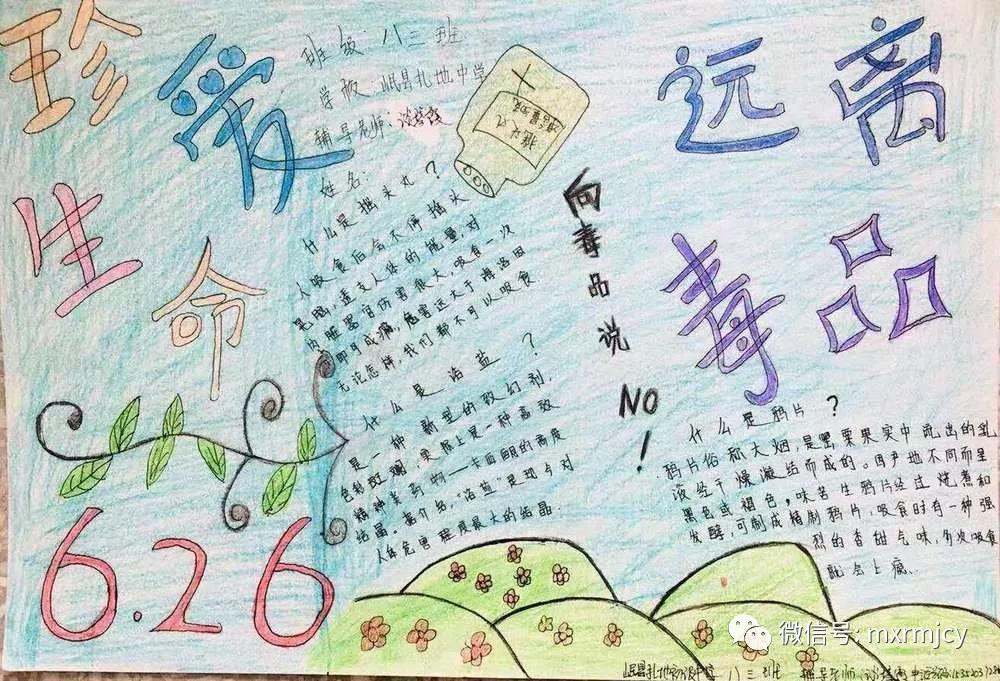 珍爱
生命
远离
毒品
班级:八三班
学校:岷县扎地中学
辅导老师:
姓名:
什么是摇头丸?
人吸食后会不停摇头
晃脑,透支人体的能量,对
内脏器官伤害很大,吸食一次
即可成瘾,危害远大于海洛因
无论怎样,我们都不可以吸食
什么是浴盐?
是一种新型的致幻剂,
色彩斑斓,实质上是一种高效
精神类药物——卡西酮的高度
结晶。据介绍,“浴盐”是现今对
人体危害程度最大的结晶.
向毒品说
NO!
什么是鸦片?
鸦片俗称大烟,是罂粟果实中流出的乳
液经干燥凝结而成的。因产地不同而呈
黑色或褐色,味苦生鸦片经过烧煮和
发酵,可制成精制鸦片,吸食时有一种强
烈的香甜气味,多次吸食
就会上瘾、
6.26
微信号: mxrmjcy
岷县扎地初级中学 八三班 辅导老师